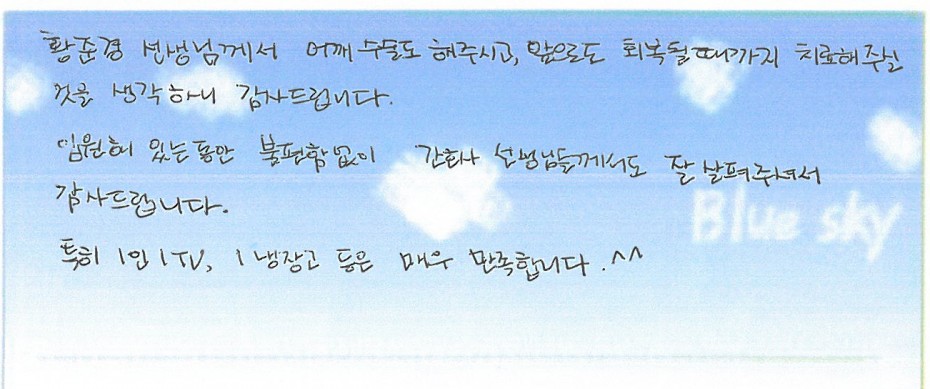 황준경 선생님께서 어깨 수술도 해주시고, 앞으로도 회복될때까지 치료해주실
것을 생각하니 감사드립니다.
입원해 있는동안 불편함없이 간호사 선생님들께서도 잘 살펴주셔서
감사드립니다.
Blue sky
특히 1인 1TV, 1냉장고 등은 매우 만족합니다. ^^